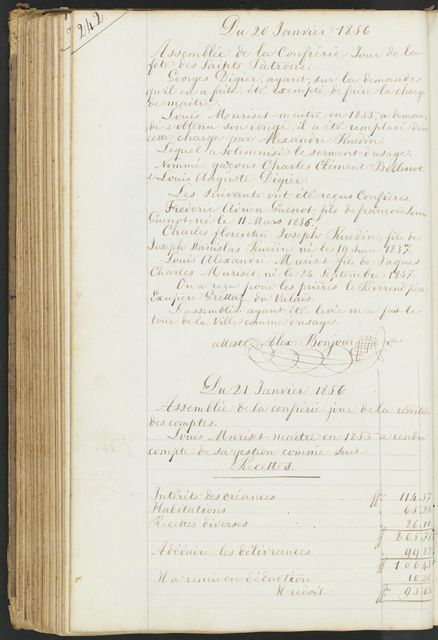 242
Du 20 Janvier 1856
Assemblée de la Confrérie Jour de la
fête des Saints Patrons.
Georges Digier, ayant, sur la demande
qu'il en a faite, été exempté de faire la charge
de maître.
Louis Muriset maître en 1855, a deman-
dé & obtenu son congé, il a été remplacé dans
cette charge par Alexandre Ruedin.
Lequel a solennisé le serment d'usage.
Nommé gaçons Charles Clément Bedenot
& Louis Auguste Digier.
Les suivants ont été reçus Confrères.
Frédéric Adrien Guenot, fils de françois Louis
Guenot né le 11 Mars 1836.
Charles florentin Joseph Ruedin, fils de
Joseph Stanislas Ruedin né le 19 Juin 1837.
Louis Alexandre Muriset fils de Jaques
Charles Muriset, né le 24 Septembre 1837.
On a reçu pour les prières le Révérend père
Exupère Grettaz du Valais.
L'assemblée ayant été levée on a fait le
tour de la Ville comme d'usage.
atteste Alex. Bonjour
Du 21 Janvier 1856
Assemblée de la confrérie jour de la reddition
des comptes.
Louis Muriset maître en 1855 a rendu
compte de sa gestion comme suit
Recettes.
Intérêts des créances 114.37
Habitations 65.28
Recettes diverses 26.10
205.75
A déduire les délivrances 99.32
106.43
Il a remis en déduction 10.80
Il redoit 95.63